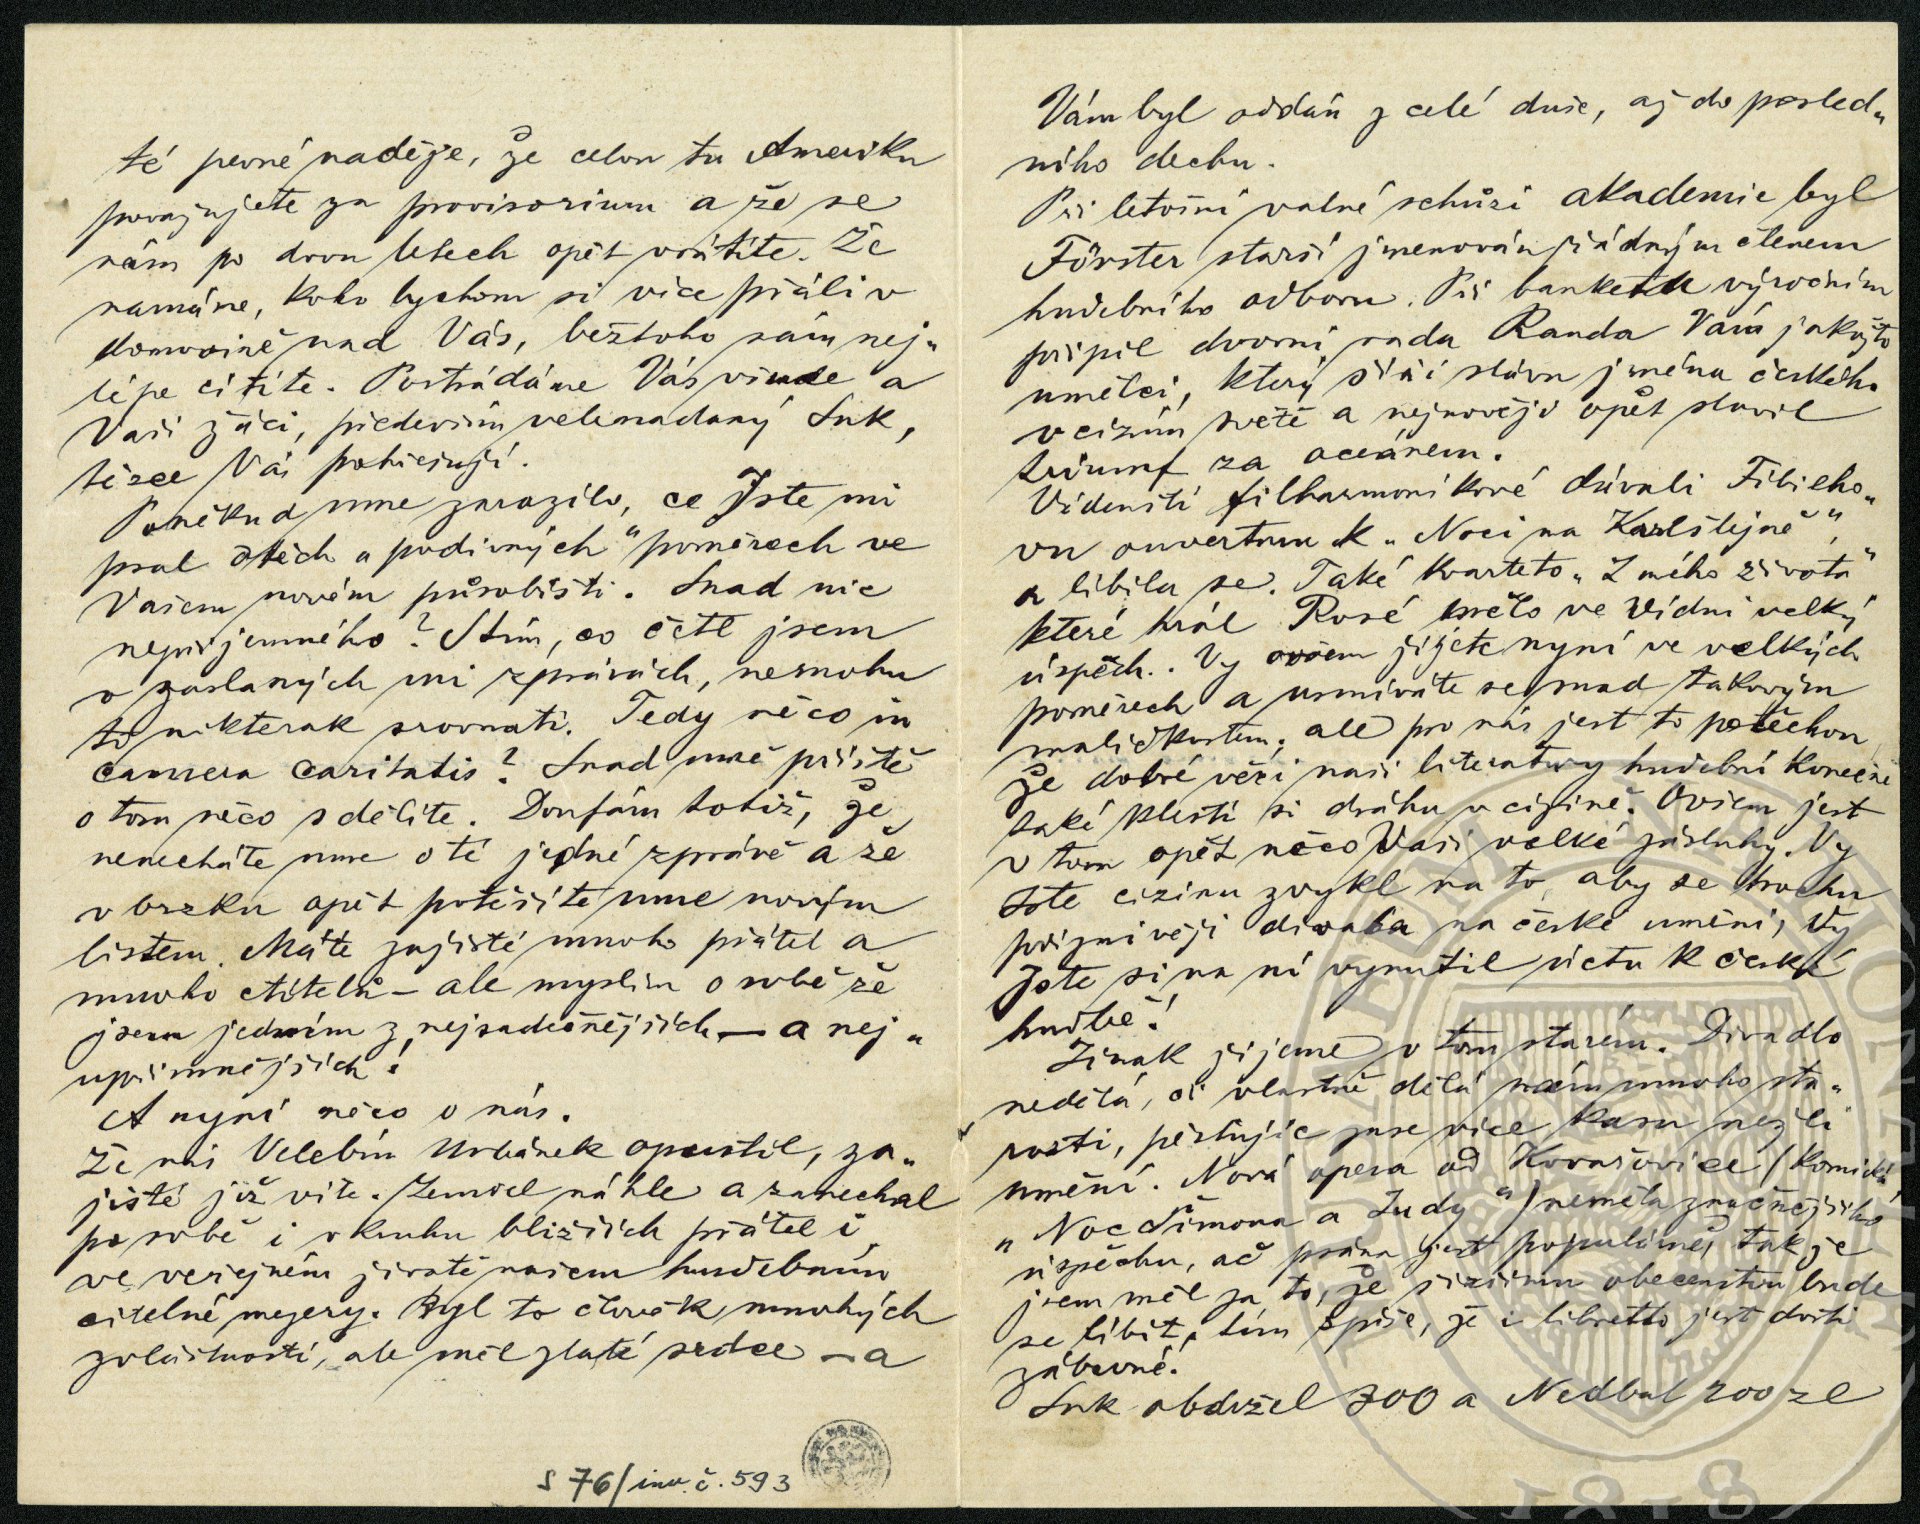 té pevné naděje, že celou tu Ameriku
považujete za provisorium a že se
nám po dvou letech opět vrátíte. Že
namáme, koho bychom si více přáli v
domovině nad Vás, beztoho sám nej„
lépe cítíte. Postrádáme Vás všude a
Vaši žáci, především velenadaný Suk,
těžce Vás pohřešují.
Poněkud mne zarazilo, co Jste mi
psal o těch „podivných“ poměrech ve
Vašem novém působišti. Snad nic
nepříjemného? S tím, co četl jsem
v zaslaných mi zprávách, nemohu
to nikterak srovnati. Tedy něco in
camera caritatis? Snad mně příště
o tom něco sdělíte. Doufám totiž, že
nenecháte mne o té jedné zprávě a že
v brzku opět potěšíte mne novým
listem. Máte zajisté mnoho přátel a
mnoho ctitelů – ale myslím o sobě že
jsem jedním z nejsrdečnějších – a nej„
upřímnějších!
A nyní něco o nás.
Že nás Velebín Urbánek opustil, za„
jisté již víte. Zemřel náhle a zanechal
po sobě i v kruhu bližších přátel i
ve veřejném životě našem hudebním
citelné mezery. Byl to člověk mnohých
zvláštností, ale měl zlaté srdce – a
S 76/inv. č. 593
Vám byl oddán z celé duše, až do posled„
ního dechu.
Při letošní valné schůzi akademie byl
Förster starší jmenován řádným členem
hudebního odboru. Při banketu výročním
připil dvorní rada Randa Vám jakožto
umělci, který šíří slávu jména českého
v cizím světě a nejnověji opět slavil
triumf za oceánem.
Vídenští filharmonikové dávali Fibicho„
vu ouverturu k „Noci na Karlštejně“,
a líbila se. Také kvarteto „Z mého života“
které hrál Rosé mělo ve Vídni velký
úspěch. Vy ovšem žijete nyní ve velkých
poměrech a usmíváte se snad takovým
maličkostem; ale pro nás jest to potěchou
že dobré věci naší literatury hudební konečně
také klestí si dráhu v cizině. Ovšem jest
v tom opět něco Vaší velké zásluhy. Vy
Jste cizinu zvykl na to, aby se trochu
příznivěji dívala na české umění, Vy
Jste si na ní vynutil úctu k české
hudbě!
Jinak žijeme v tom starém. Divadlo
nedělá, či vlastně dělá nám mnoho sta„
rostí, pěstujíc zase více kasu nežli
umění. Nová opera od Kovařovice (komická
„Noc Šimona a Judy“) neměla značnějšího
úspěchu, ač psána jest populárně, tak že
jsem měl za to, že širšímu obecenstvu bude
se líbit, tím spíše, že i libretto jest dosti
zábavné.
Suk obdržel 300 a Nedbal 200 zl
1818